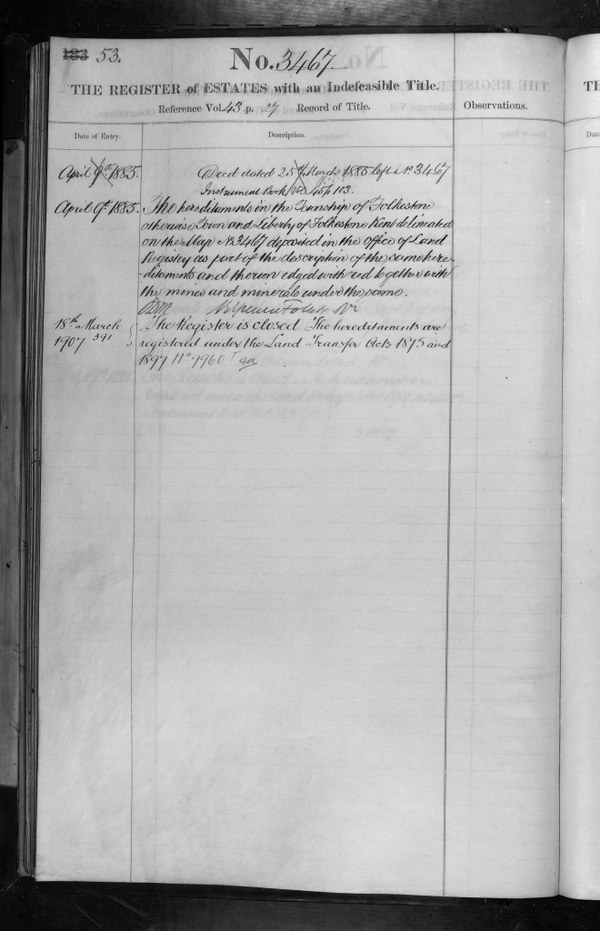 183 53.
No. 3467
THE REGISTER of ESTATES with an Indefeasible Title.
Reference Vol. 43 p. 27 Record of Title.
Observations.
Date of Entry.
Description.
April 9th 1885. Deed dated 25th March 1885 left No 3467
Instrument Book 45 p 103.
April 9th 1885. The hereditaments in the Township of Folkestone
otherwise Town and Liberty of Folkestone Kent delineated
on the Map No 3467 deposited in the office of Land
Registry as part of the description of the same here-
-ditaments and thereon edged with red together with
the mines and minerals under the same.
18th March The Register is closed The hereditaments are
1907 391 registered under the Land Transfer Acts 1875 and
1897